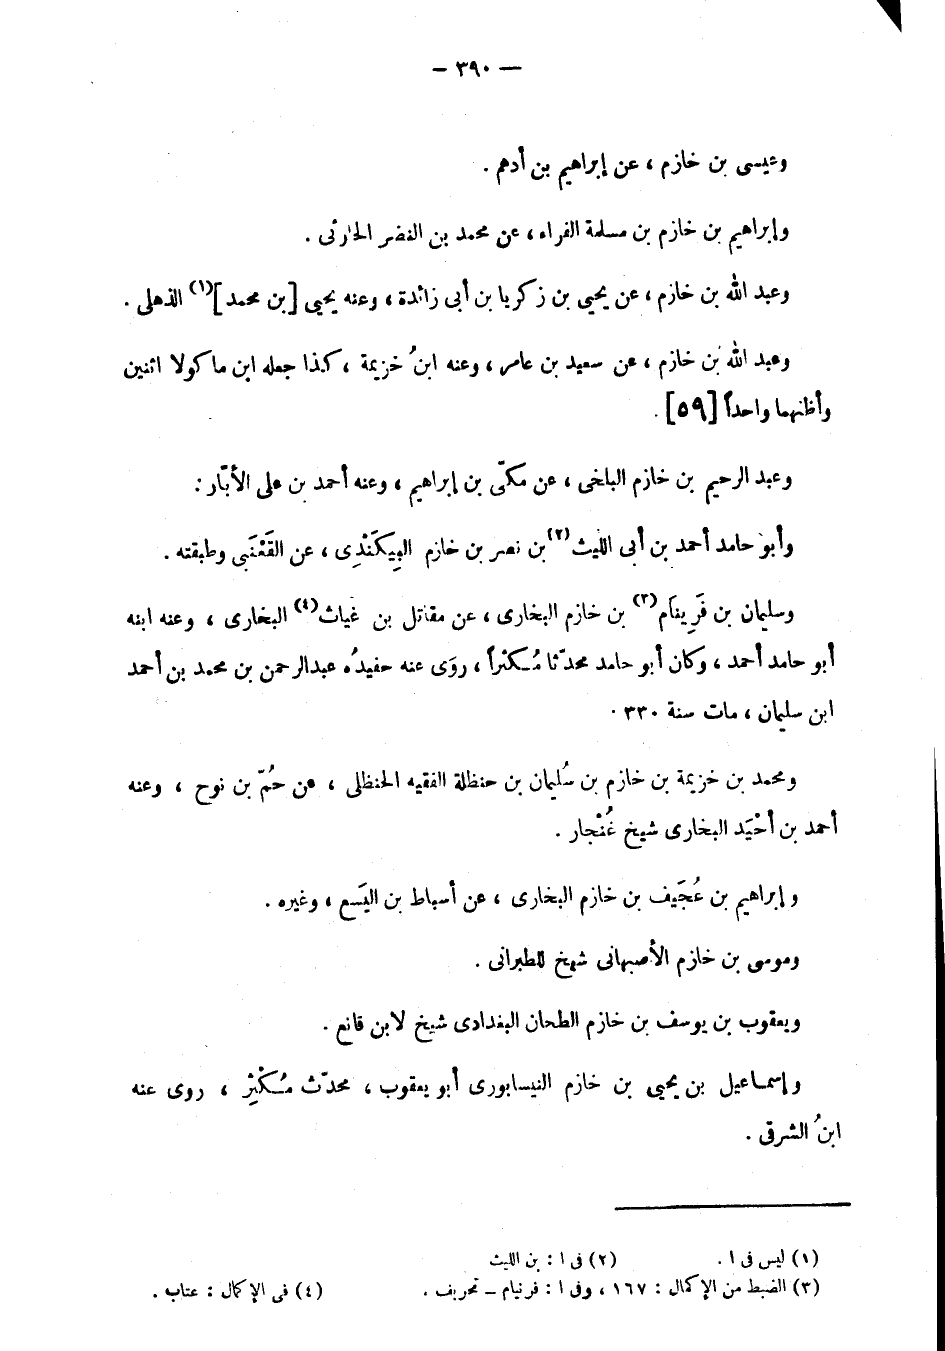 — ٣٩٠ —
وعيسى بن خازم ، عن إبراهيم بن أدهم .
وإبراهيم بن خازم بن مسلمة الفراء ، عن محمد بن النضر الحارثى .
وعبد الله بن خازم ، عن يحيى بن زكريا بن أبى زائدة ، وعنه يحيى [بن محمد](١) الذهلى .
وعبد الله بن خازم ، عن سعيد بن عامر ، وعنه ابنُ خزيمة ، كذا جعله ابن ماكولا اثنين
وأظنهما واحداً [٥٩] .
وعبد الرحيم بن خازم البلخى ، عن مكّى بن إبراهيم ، وعنه أحمد بن على الأبّار :
وأبو حامد أحمد بن أبى الليث(٢) بن نصر بن خازم البِيكَنْدِى ، عن القَعْنَبى وطبقته .
وسليمان بن فَرِينَام(٣) بن خازم البخارى ، عن مقاتل بن غياث(٤) البخارى ، وعنه ابنه
أبو حامد أحمد ، وكان أبو حامد محدّثا مُكثراً ، روَى عنه حفيدُه عبدالرحمن بن محمد بن أحمد
ابن سليمان ، مات سنة ٣٣٠ .
ومحمد بن خزيمة بن خازم بن سُليمان بن حنظلة الفقيه الحنظلى ، عن حُمّ بن نوح ، وعنه
أحمد بن أحْيَد البخارى شيخ غُنْجار .
وإبراهيم بن عُجَيف بن خازم البخارى ، عن أسباط بن اليَسع ، وغيره .
وموسى بن خازم الأصبهانى شيخ للطبرانى .
ويعقوب بن يوسف بن خازم الطحان البغدادى شيخ لابن قانع .
وإسماعيل بن يحيى بن خازم النيسابورى أبو يعقوب ، محدّث مُكْثِر ، روى عنه
ابنُ الشرقى .
(١) ليس فى ا . (٢) فى ا : بن الليث
(٣) الضبط من الإكمال : ١٦٧ ، وفى ا : فرنيام – تحريف . (٤) فى الإكمال : عتاب .